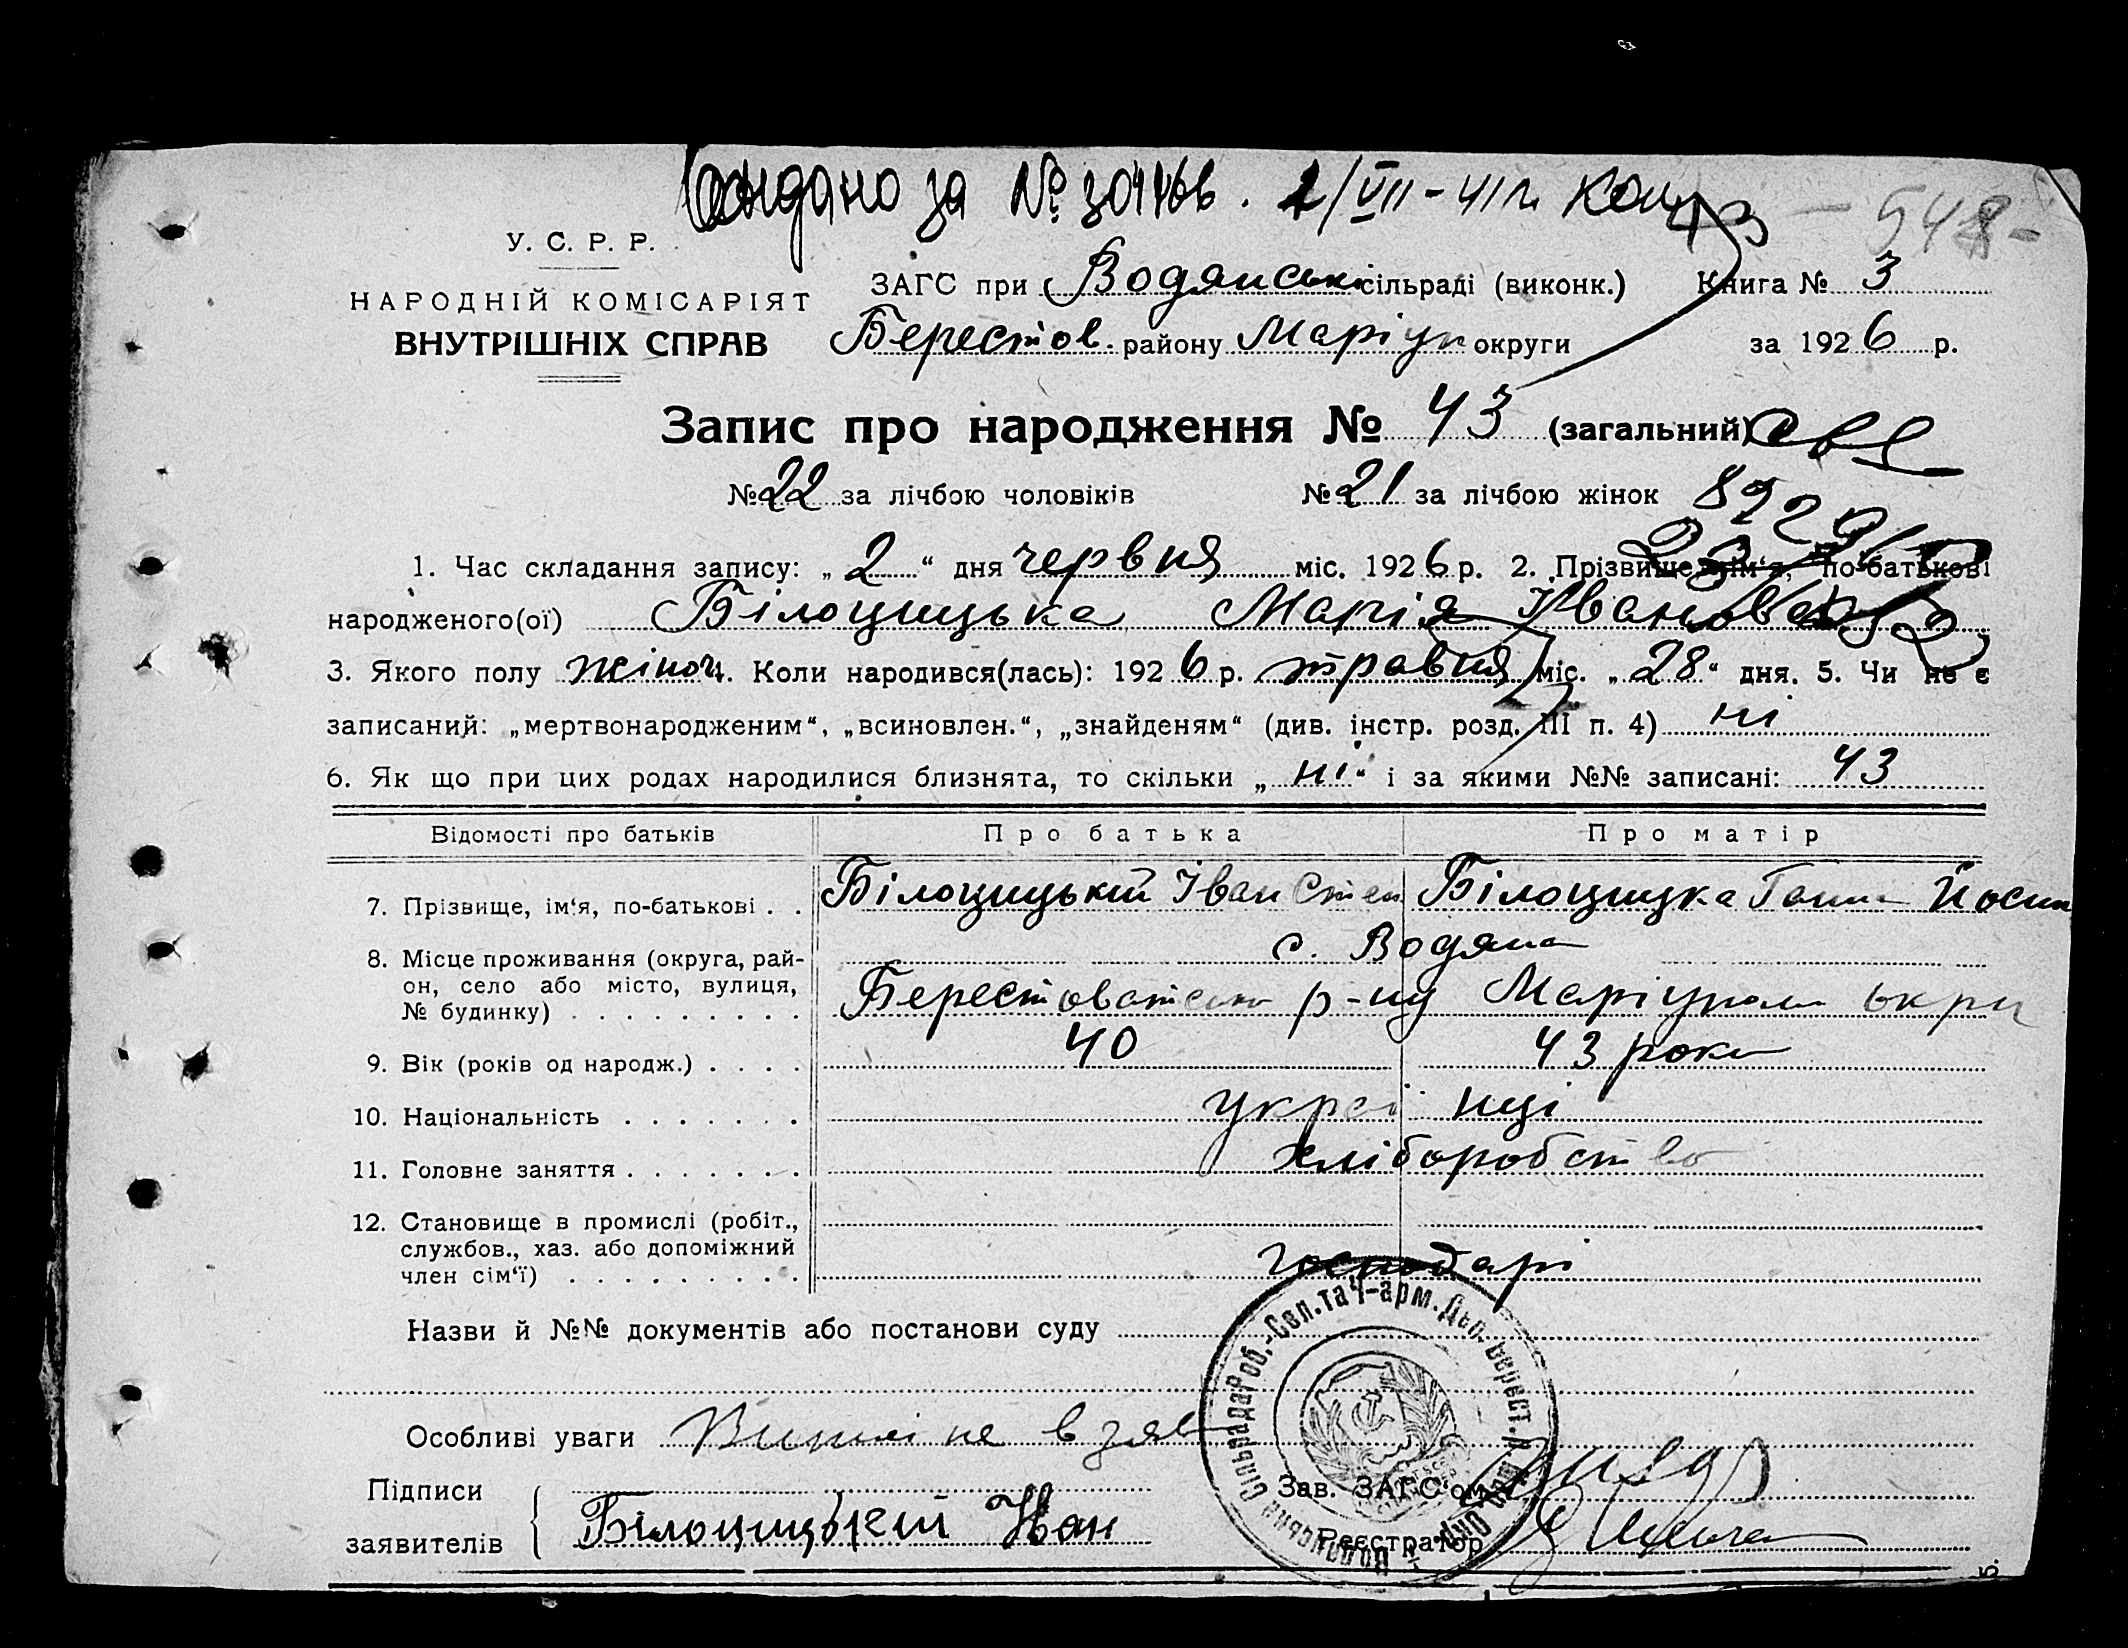 за № 2/VII-41 г. - 548-
У. С. Р. Р.
НАРОДНІЙ КОМІСАРІЯТ
ВНУТРІШНІХ СПРАВ
ЗАГС при Водянські сільраді (виконк.) Книга № 3
Берестов. району Маріуп округи за 1926 р.
Запис про народження № 43 (загальний)
№ 22 за лічбою чоловіків № 21 за лічбою жінок
1. Час складання запису: „2“ дня червня міс. 1926 р. 2. Прізвище, ім‘я, по-батькові
народженого(ої) Білоцицька Марія Івановна
3. Якого полу жіноч. Коли народився(лась): 1926 р. травня міс. „28“ дня. 5. Чи не є
записаний: „мертвонародженим“, „всиновлен.“, „знайденям“ (див. інстр. розд. III п. 4) ні
6. Як що при цих родах народилися близнята, то скільки „ні“ і за якими №№ записані: 43
Відомості про батьків Про батька Про матір
7. Прізвище, ім‘я, по-батькові . . Білоцицькій Іван Степ Білоцицка Ганна Йосип
с. Водяна
8. Місце проживання (округа, рай-
он, село або місто, вулиця,
№ будинку) . . . . . . . . . р-ну Маріупол окри
9. Вік (років од народж.) . . . . 40 43 роки
10. Національність . . . . . . . українці
11. Головне заняття . . . . . . . хліборобство
12. Становище в промислі (робіт.,
службов., хаз. або допоміжний
член сім‘ї) . . . . . . . . . господарі
Назви й №№ документів або постанови суду
Особливі уваги не взяв
Підписи
заявителів Білоцицькій Іван
Зав. ЗАГС‘ом
Реєстратор